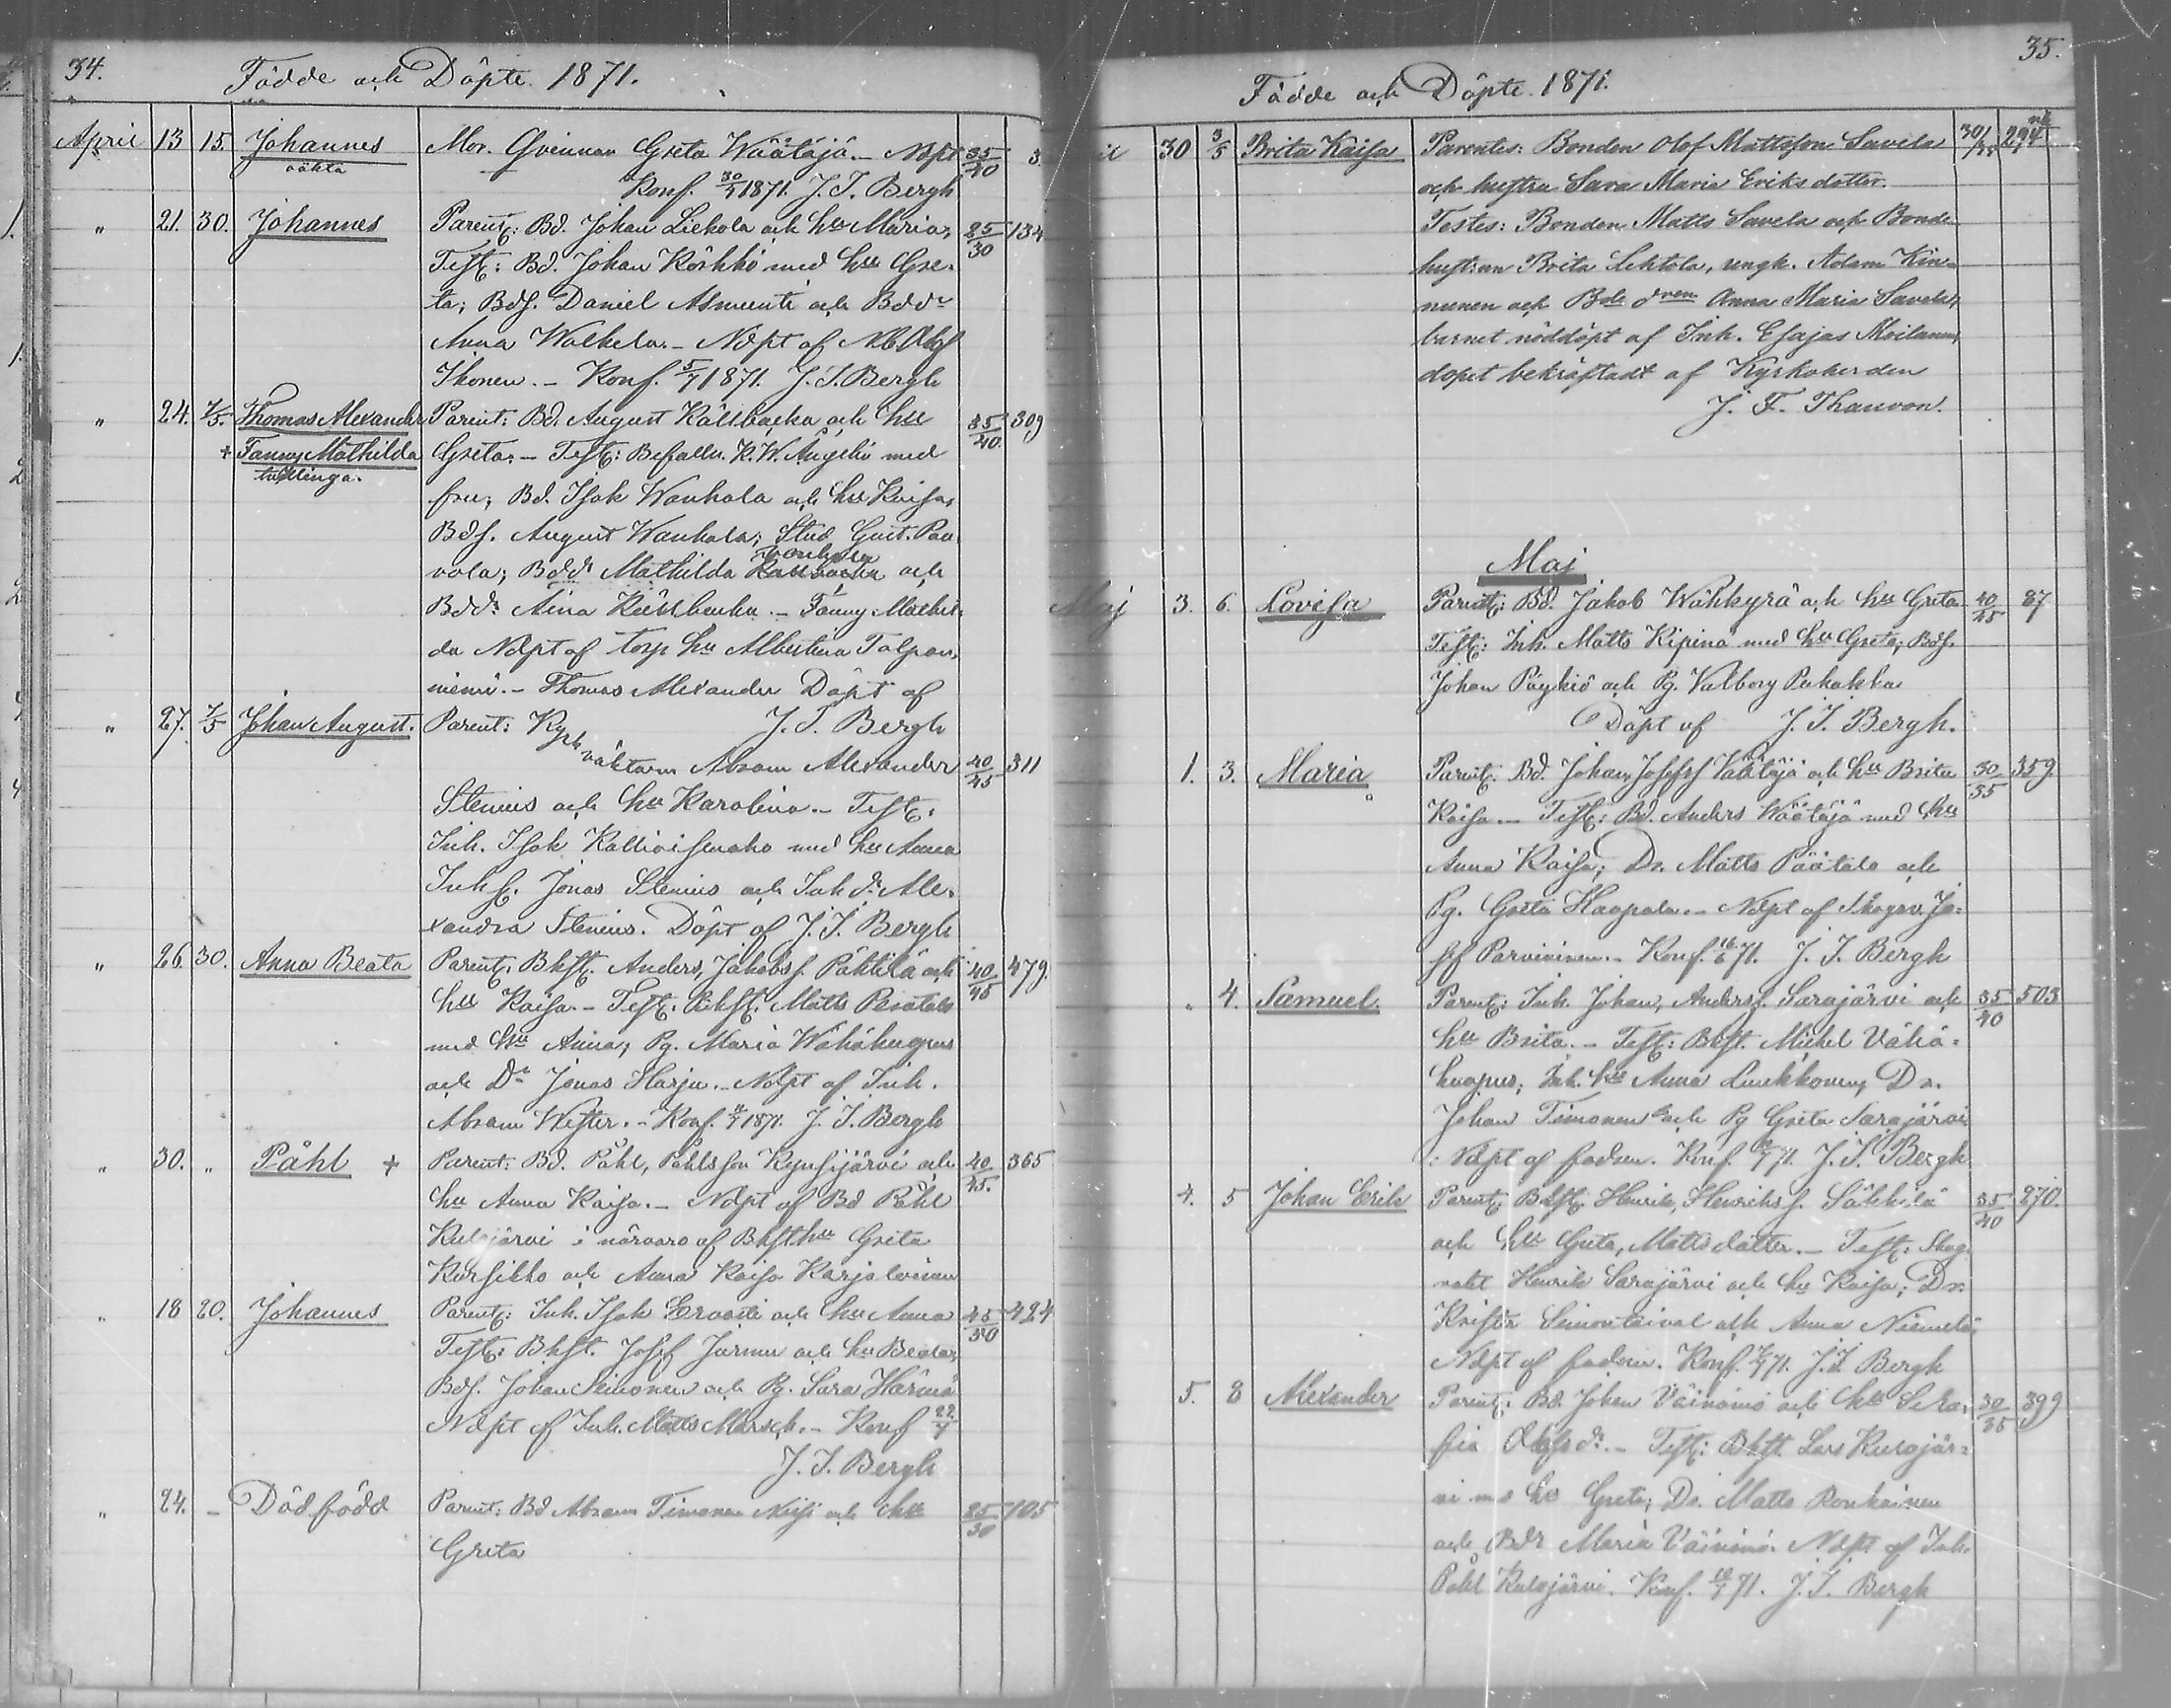 34.
Födde och Döpte 1871.
April 13 15. Johannes Mor. Qvinnan Greta Väätäjä. - Ndpt 35/40 3.
oäkta Konf. 30/7 1871. J. T. Bergh
" 21. 30. Johannes Parent: Bd. Johan Liekola och hu Maria, 25/30 134
Test: Bd. Johan Körkkö med hu Gre-
ta; Bds. Daniel Asmunti och Bddr
Anna Walkela. - Ndpt af Olof
Ihonen. - Konf. 5/7 1871. J. T. Bergh
" 24. 7/5. Thomas Alexander Parent: Bd. August Källbacka och hu 35/40. 309
+ Fanny Mathilda Greta. - Test: Befallm. K. W. Angelin med
tvillingar. fru; Bd. Isak Wanhala och hu Kaisa,
Bds. August Wanhala; Stud Gust. Paa
vola; Bdd. Mathilda och
Bddr Aina Källbacka. - Fanny Mathil-
da Ndpt af torp hu Albertina Talpan-
niemi. - Thomas Alexander Döpt af
J. T. Bergh
" 27. 7/5 Johan August. Parent: Kyrk
väktaren Abram Alexander 40/45 311
Stenius och hu Karolina. - Test:
Inh. Isak med hu Anna
Inhs. Jonas Stenius och Inh dr Ale-
xandra Stenius. Döpt af J. T. Bergh
" 26. 30. Anna Beata Parent: Bkft. Anders, Jakobs s. Pähtilä och 40/45 479.
hu Kaisa. - Test: Bkft. Matts
med hu Anna; Pg. Maria
och Dr Jonas Harju. - Ndpt af Inh.
Abram Wester. - Konf. 1871. J. T. Bergh
" 30. " Påhl + Parent: Bd. Påhl, Påhlsson Kynsijärvi och 40/45. 365
hu Anna Kaisa. - Ndpt af Bd Påhl
Kulojärvi i närvaro af Bkft hu Greta
Kursikko och Anna Kaisa Karjalainen
" 18 20. Johannes Parent: Inh. Isak Ervasti och hu Anna 45/50 424
Test: Bkft. Josef Jurmu och hu Beata,
Bds. Johan Simonen och Pg. Sara Härmä
Ndpt af Inh. Matts Marsch. - Konf 22/7
J. T. Bergh
" 24. - Dödfödd Parent: Bd Abram Timonen och hu 25/30 105
Greta
35.
Födde och Döpte 1871.
30 3/5 Brita Kaisa Parentes: Bonden Olof Mattsson Savela 30/35 294
och hustru Sara Maria Eriksdotter.
Testes: Bonden Matts Savela och Bonde
hustrun Brita Lehtola, ungk. Adam Kin-
nunen och Bde dren Anna Maria Savela,
barnet nöddöpt af Inh. Esajas Moilanen,
dopet bekräftadt af Kyrkoherden
J. F. Thauvon.
Maj
Maj 3. 6. Lovisa Parent: Bd. Jakob Wähkyrä och hu Greta 40/45 87
Test: Inh. Matts Kipinä med hu Greta; Bds.
Johan Päykiö och Pg. Valborg Pekakka
Döpt af J. T. Bergh.
1. 3. Maria Parent: Bd. Johan, Josefs s Väätäjä och hu Brita 30/35 359.
Kaisa. - Test: Bd. Anders Väätäjä med hu
Anna Kaisa; Dr. Matts Päätalo och
Pg. Greta Haapala. - Ndpt af Skogsv. Jo-
sef Parviainen. - Konf. 16/6 71. J. T. Bergh
" 4. Samuel. Parent: Inh. Johan, Anders s. Sarajärvi och 35/40 503
hu Brita. - Test: Bkft. Michel Vähä-
kuopus; Inh. hu Anna Luukkonen; Dr.
Johan Timonen och Pg Greta Sarajärvi
Ndpt af fadren. Konf. 71. J. T. Bergh
4. 5 Johan Erik Parent: Bkft. Henrik, Henriks s. Säkkilä 35/40 270.
och hu Greta, Mattsdotter. - Test: Skog.
vakt Henrik Sarajärvi och hu Kaisa; Dr.
Krister och Anna Niemelä,
Ndpt af fadren. Konf. 71. J. T. Bergh
5. 8 Alexander Parent: Bd. Johan Väinämö och hu Sera- 30/35 399
fia Olofs dr. - Test: Bkft. Lars Kulojär-
vi m s hu Greta; Dr. Matts Ronkainen
och Bdr Maria Väinämö. Ndpt af Inh.
Påhl Kulojärvi. Konf. 71. J. T. Bergh